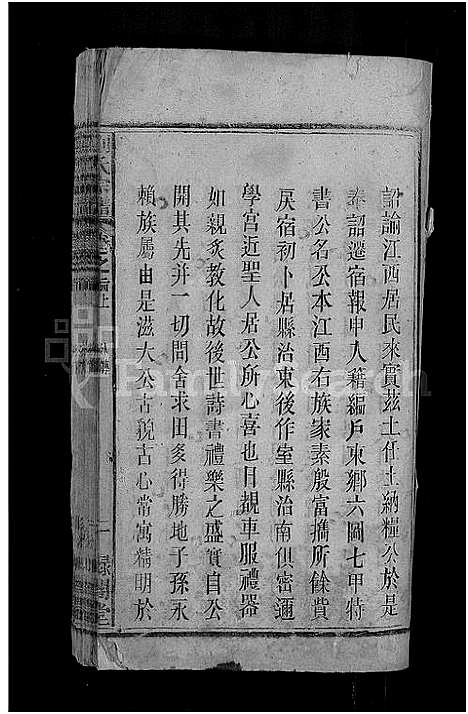 詔諭江西居民來實茲土任土納糧公於是
奉詔遷宿報申入籍編戶東鄉六圖七甲特
書公名公本江西右族家素殷富攜所餘貲
戾宿初卜居縣治東後作室縣治南俱密邇
學宮近聖人居公所心喜也日覩車服禮器
如親炙教化故後世詩書禮樂之盛實自公
開其先并一切問舍求田多得勝地子孫永
賴族屬由是滋大公古貌古心常寓精明於
氏宗譜
FamilySearch